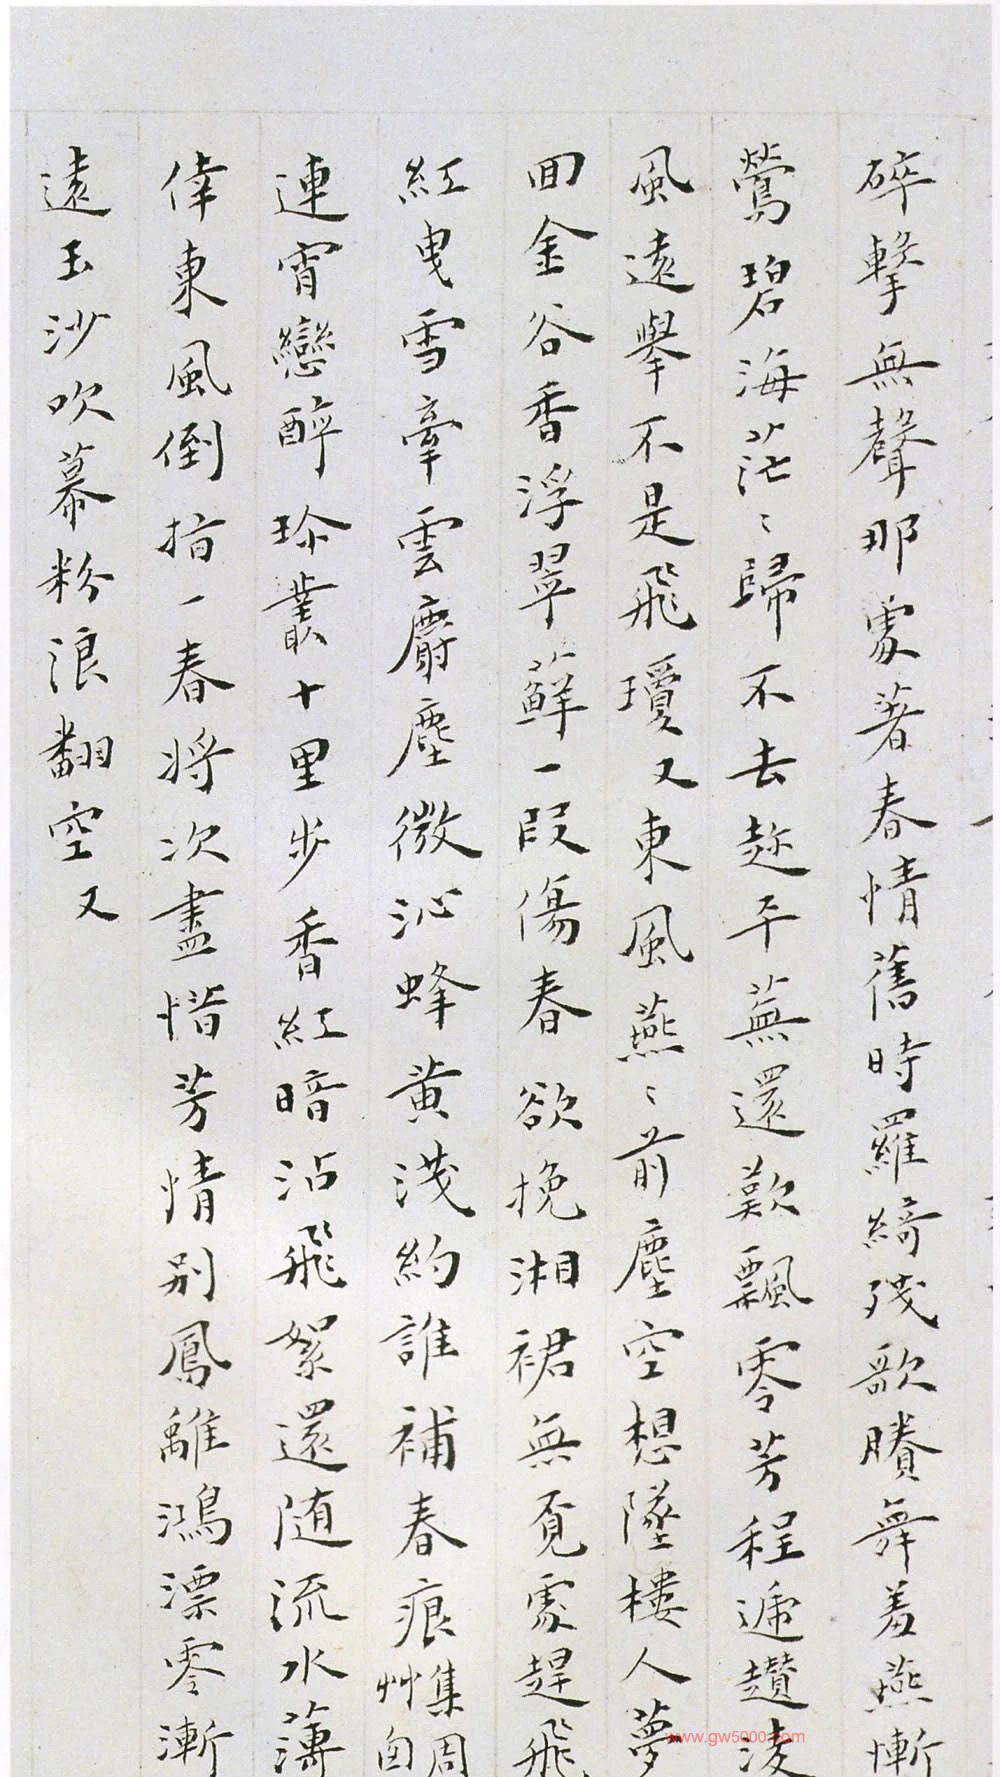 碎擊無聲那處著春情舊時羅綺殘歌賸舞羞燕慚
鶯碧海茫〻歸不去趂平蕪還歎飄零芳程遞趲淩
風遠舉不是飛瓊又東風燕〻前塵空想墜樓人夢
回金谷香浮翠蘚一段傷春欲挽湘裙無覓處趕飛
紅曳雪牽雲麝塵微沁蜂黃淺約誰補春痕
集周
艸囱
連宵戀醉珍叢十里步香紅暗沾飛絮還随流水薄
倖東風倒指一春將次盡惜芳情別鳳離鴻漂零漸
遠玉沙吹幕粉浪翻空又
www.gw5000.com